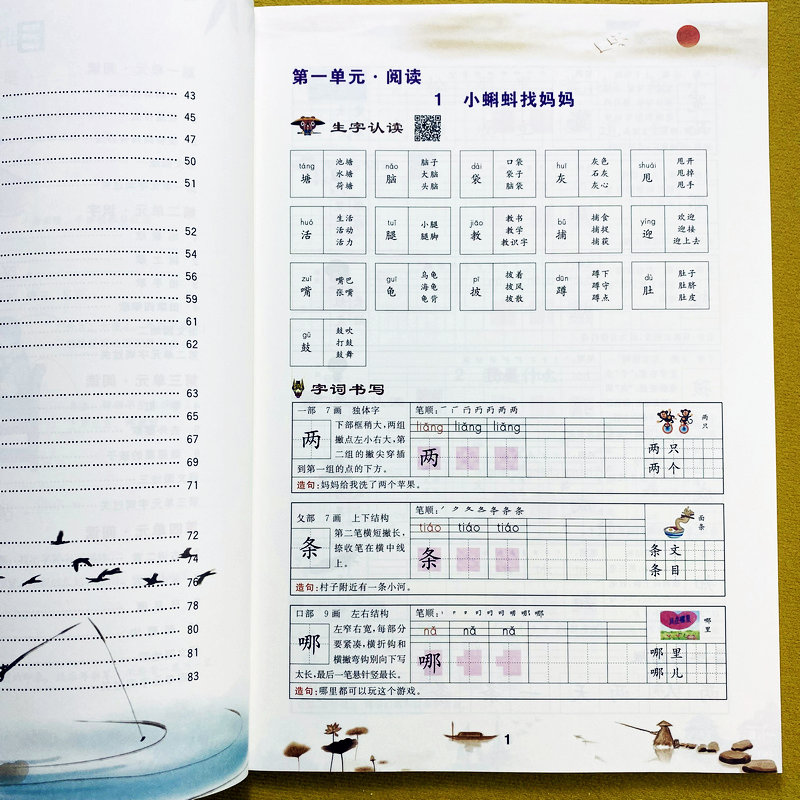 43
45
47
50
51
52
54
56
59
61
62
63
65
67
69
71
72
74
76
78
80
81
83
第一单元·阅读
1 小蝌蚪找妈妈
生字认读
táng 塘 池塘 水塘 荷塘
nǎo 脑 脑子 大脑 头脑
dài 袋 口袋 袋子 脑袋
huī 灰 灰色 石灰 灰心
shuǎi 甩 甩开 甩掉 甩手
huó 活 生活 活动 活力
tuǐ 腿 小腿 腿脚
jiāo 教 教书 教学 教识字
bǔ 捕 捕食 捕捉 捕获
yíng 迎 欢迎 迎接 迎上去
zuǐ 嘴 嘴巴 张嘴
guī 龟 乌龟 海龟 龟背
pī 披 披着 披风 披散
dūn 蹲 蹲下 蹲守 蹲点
dù 肚 肚子 肚脐 肚皮
gǔ 鼓 鼓吹 打鼓 鼓舞
字词书写
一部 7画 独体字
两
下部框稍大,两组
撇点左小右大,第
二组的撇尖穿插
到第一组的点的下方。
笔顺:
liǎng liǎng liǎng
两
两只
两只
两个
造句:妈妈给我洗了两个苹果。
夂部 7画 上下结构
条
第二笔横短撇长,
捺收笔在横中线
上。
笔顺:
tiáo tiáo tiáo
条
面条
条文
条目
造句:村子附近有一条小河。
口部 9画 左右结构
哪
左窄右宽,每部分
要紧凑,横折钩和
横撇弯钩别向下写
太长,最后一笔悬针竖最长。
笔顺:
nǎ nǎ nǎ
哪
哪里
哪里
哪儿
造句:哪里都可以玩这个游戏。
1